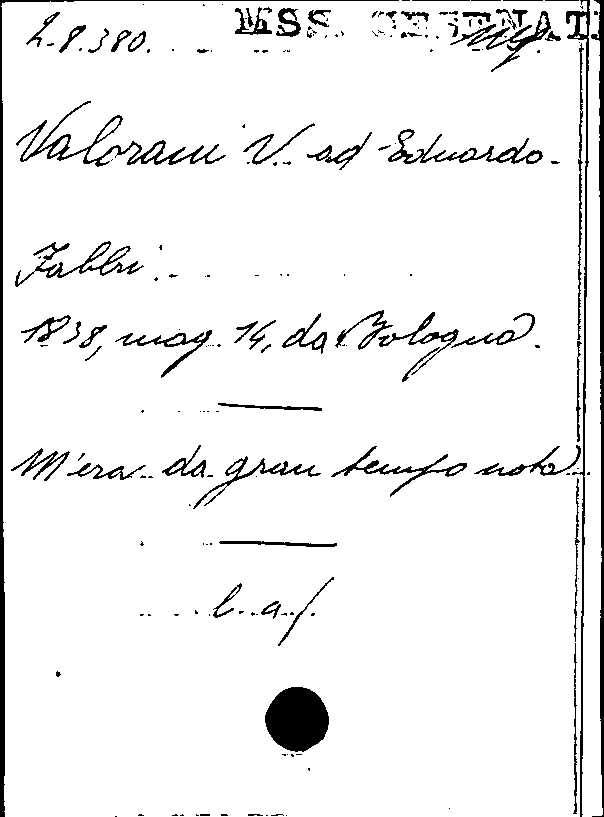 2.8.380. MSS. CESENAT
Valorani V. ad Eduardo
Fabbri
1838, mag. 14, da Bologna.
M'era da gran tempo nota
l. a f.